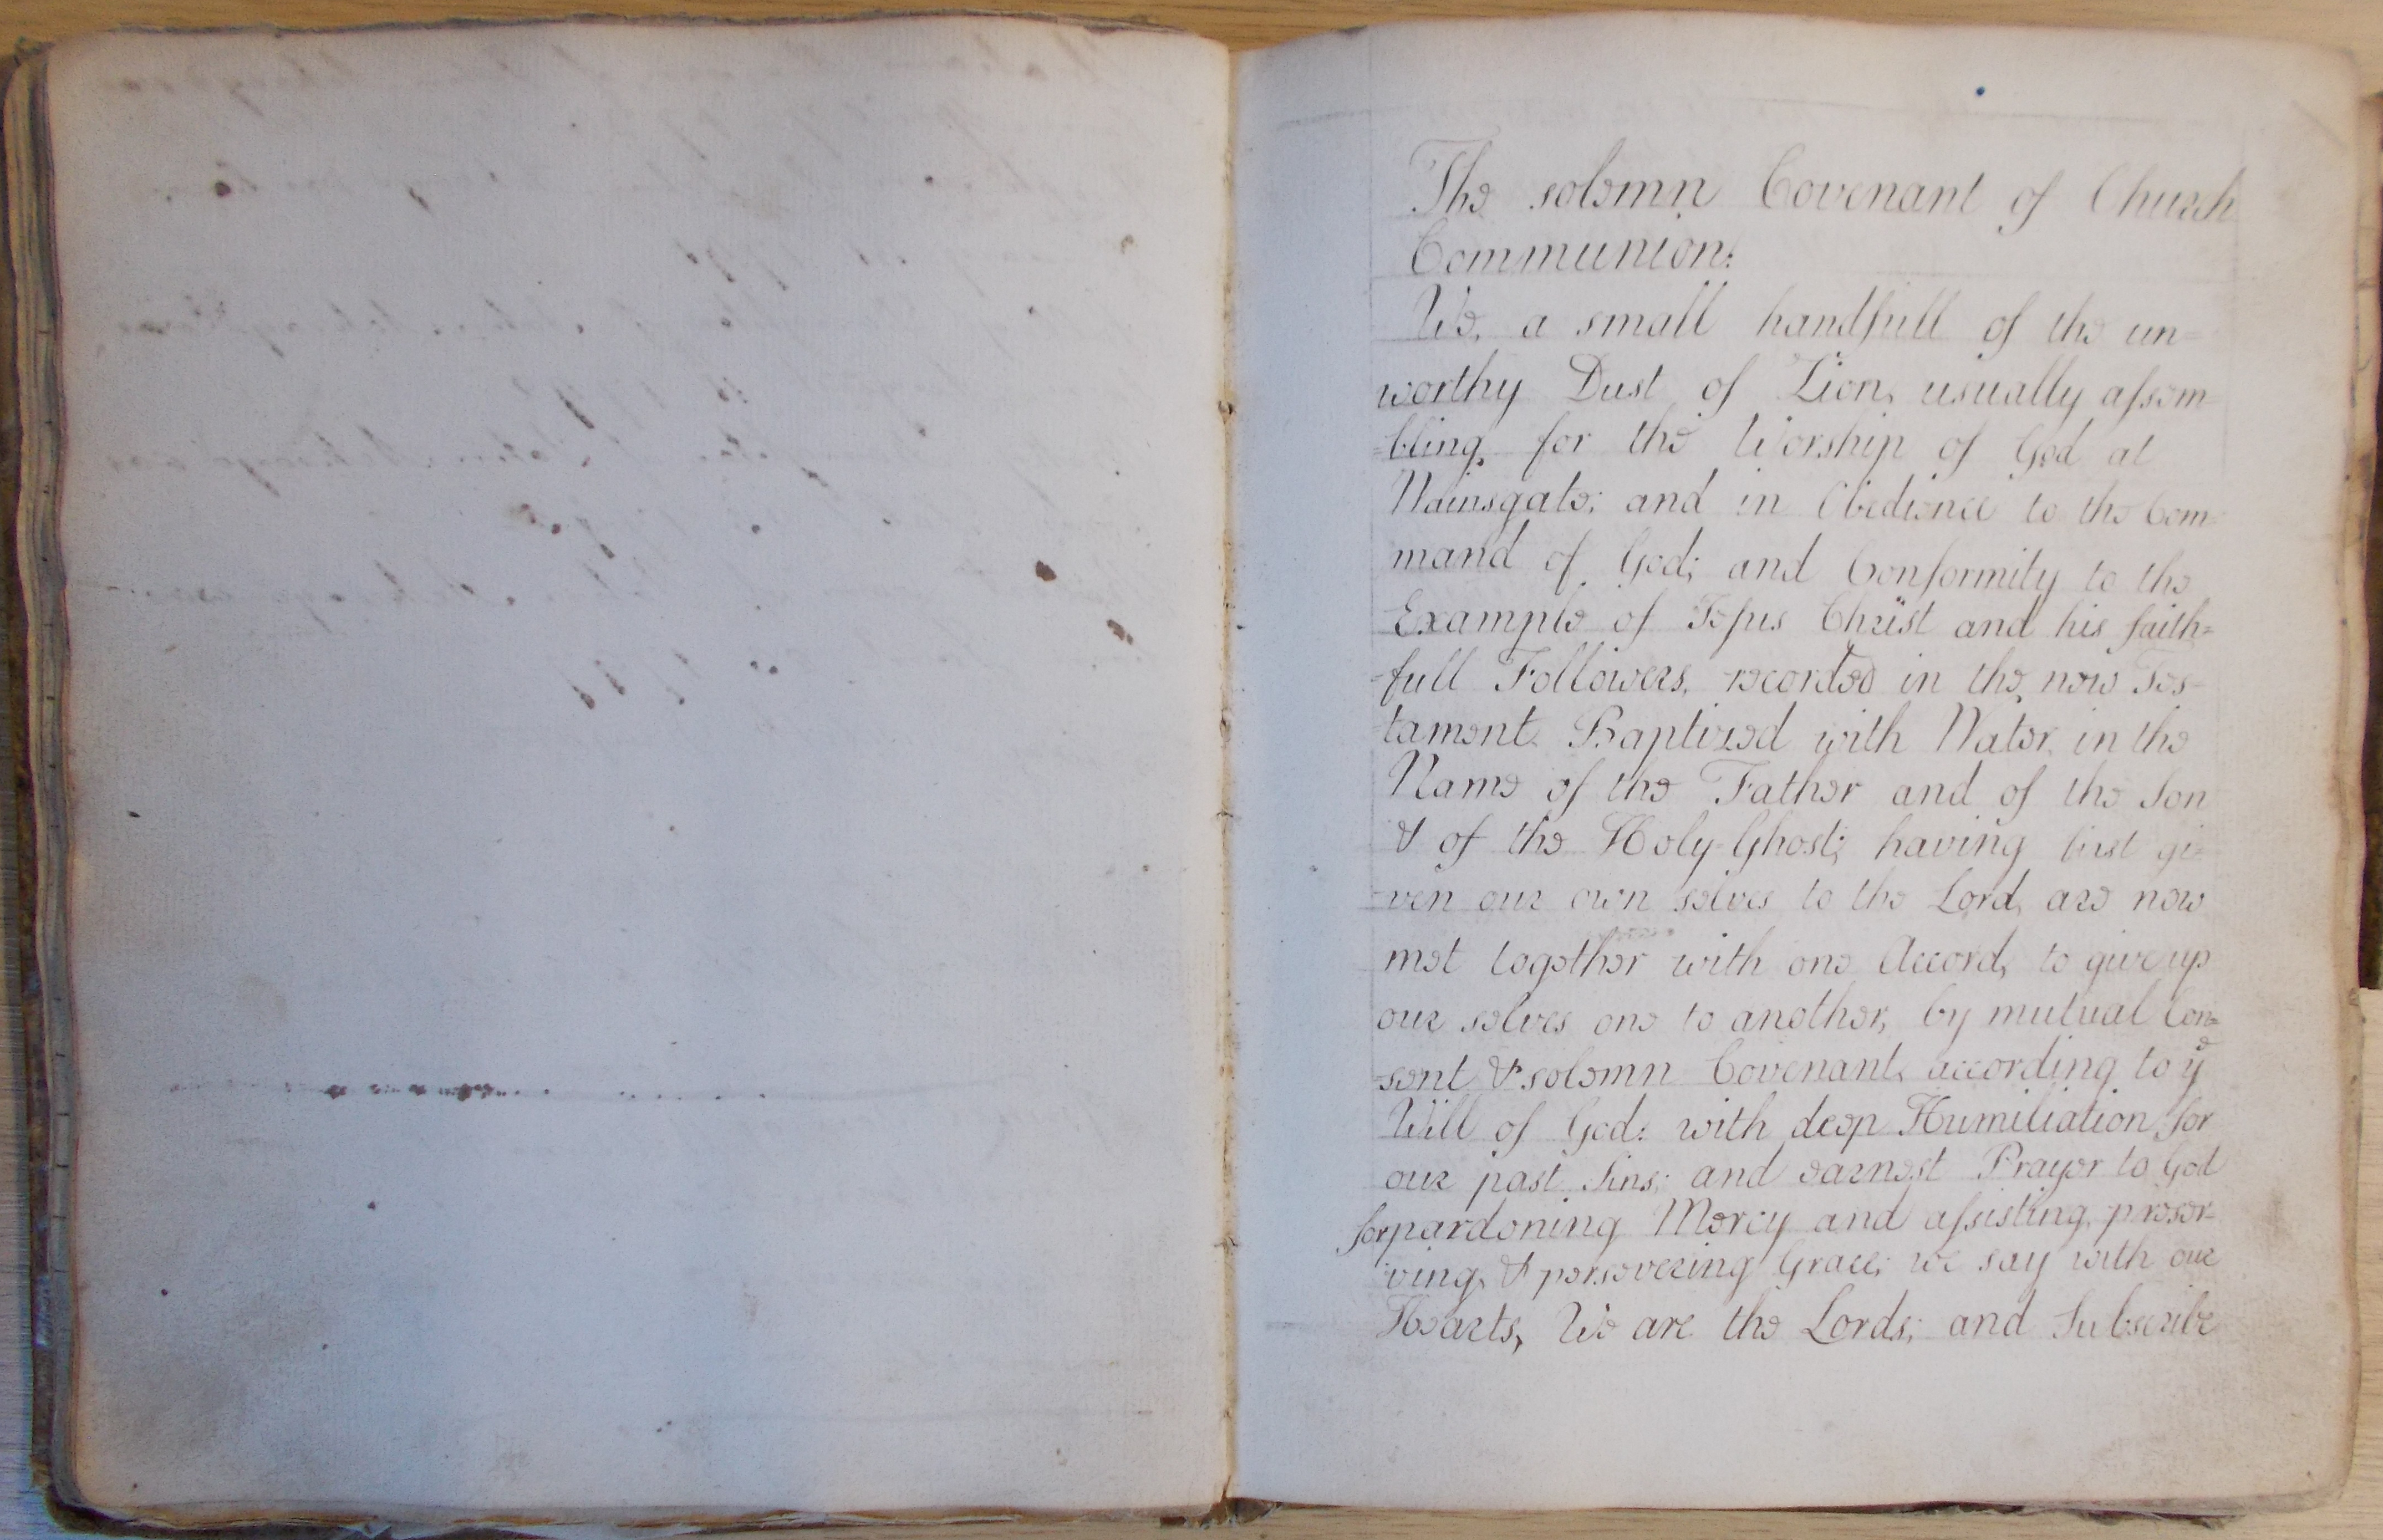 The solemn Covenant of Church
Communion:
We, a small handfull of the un=
worthy Dust of Zion, usually assem=
=bling, for the Worship of God at
Wainsgate; and in Obedience to the Com=
mand of God; and Conformity to the
Example of Jesus Christ and his faith=
=full Followers, recorded in the new Tes=
tament. Baptized with Water, in the
Name of the Father and of the Son
& of the Holy-Ghost; having first gi=
=ven our own selves to the Lord, are now
met together with one Accord, to give up
our selves one to another, by mutual Con=
=sent & solemn Covenant, according to yᵉ
Will of God: with deep Humiliation for
our past Sins; and earnest Prayer to God
for pardoning Mercy and assisting, preser=
ving, & persevering Grace; we say with our
Hearts, We are the Lords; and Subscribe